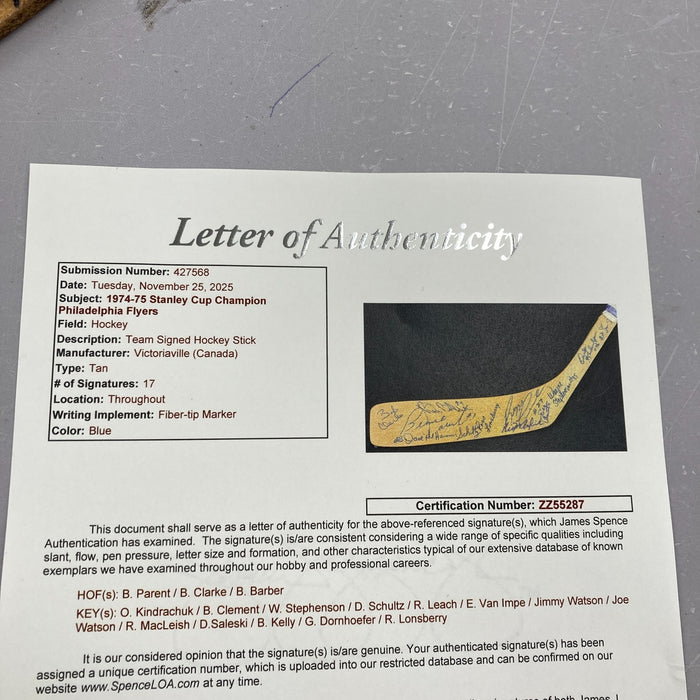 Letter of Authenticity
Submission Number: 427568
Date: Tuesday, November 25, 2025
Subject: 1974-75 Stanley Cup Champion
Philadelphia Flyers
Field: Hockey
Description: Team Signed Hockey Stick
Manufacturer: Victoriaville (Canada)
Type: Tan
# of Signatures: 17
Location: Throughout
Writing Implement: Fiber-tip Marker
Color: Blue
Certification Number: ZZ55287
This document shall serve as a letter of authenticity for the above-referenced signature(s), which James Spence
Authentication has examined. The signature(s) is/are consistent considering a wide range of specific qualities including
slant, flow, pen pressure, letter size and formation, and other characteristics typical of our extensive database of known
exemplars we have examined throughout our hobby and professional careers.
HOF(s): B. Parent / B. Clarke / B. Barber
KEY(s): O. Kindrachuk / B. Clement / W. Stephenson / D. Schultz / R. Leach / E. Van Impe / Jimmy Watson / Joe
Watson / R. MacLeish / D.Saleski / B. Kelly / G. Dornhoefer / R. Lonsberry
It is our considered opinion that the signature(s) is/are genuine. Your authenticated signature(s) has been
assigned a unique certification number, which is uploaded into our restricted database and can be confirmed on our
website www.SpenceLOA.com at any time.